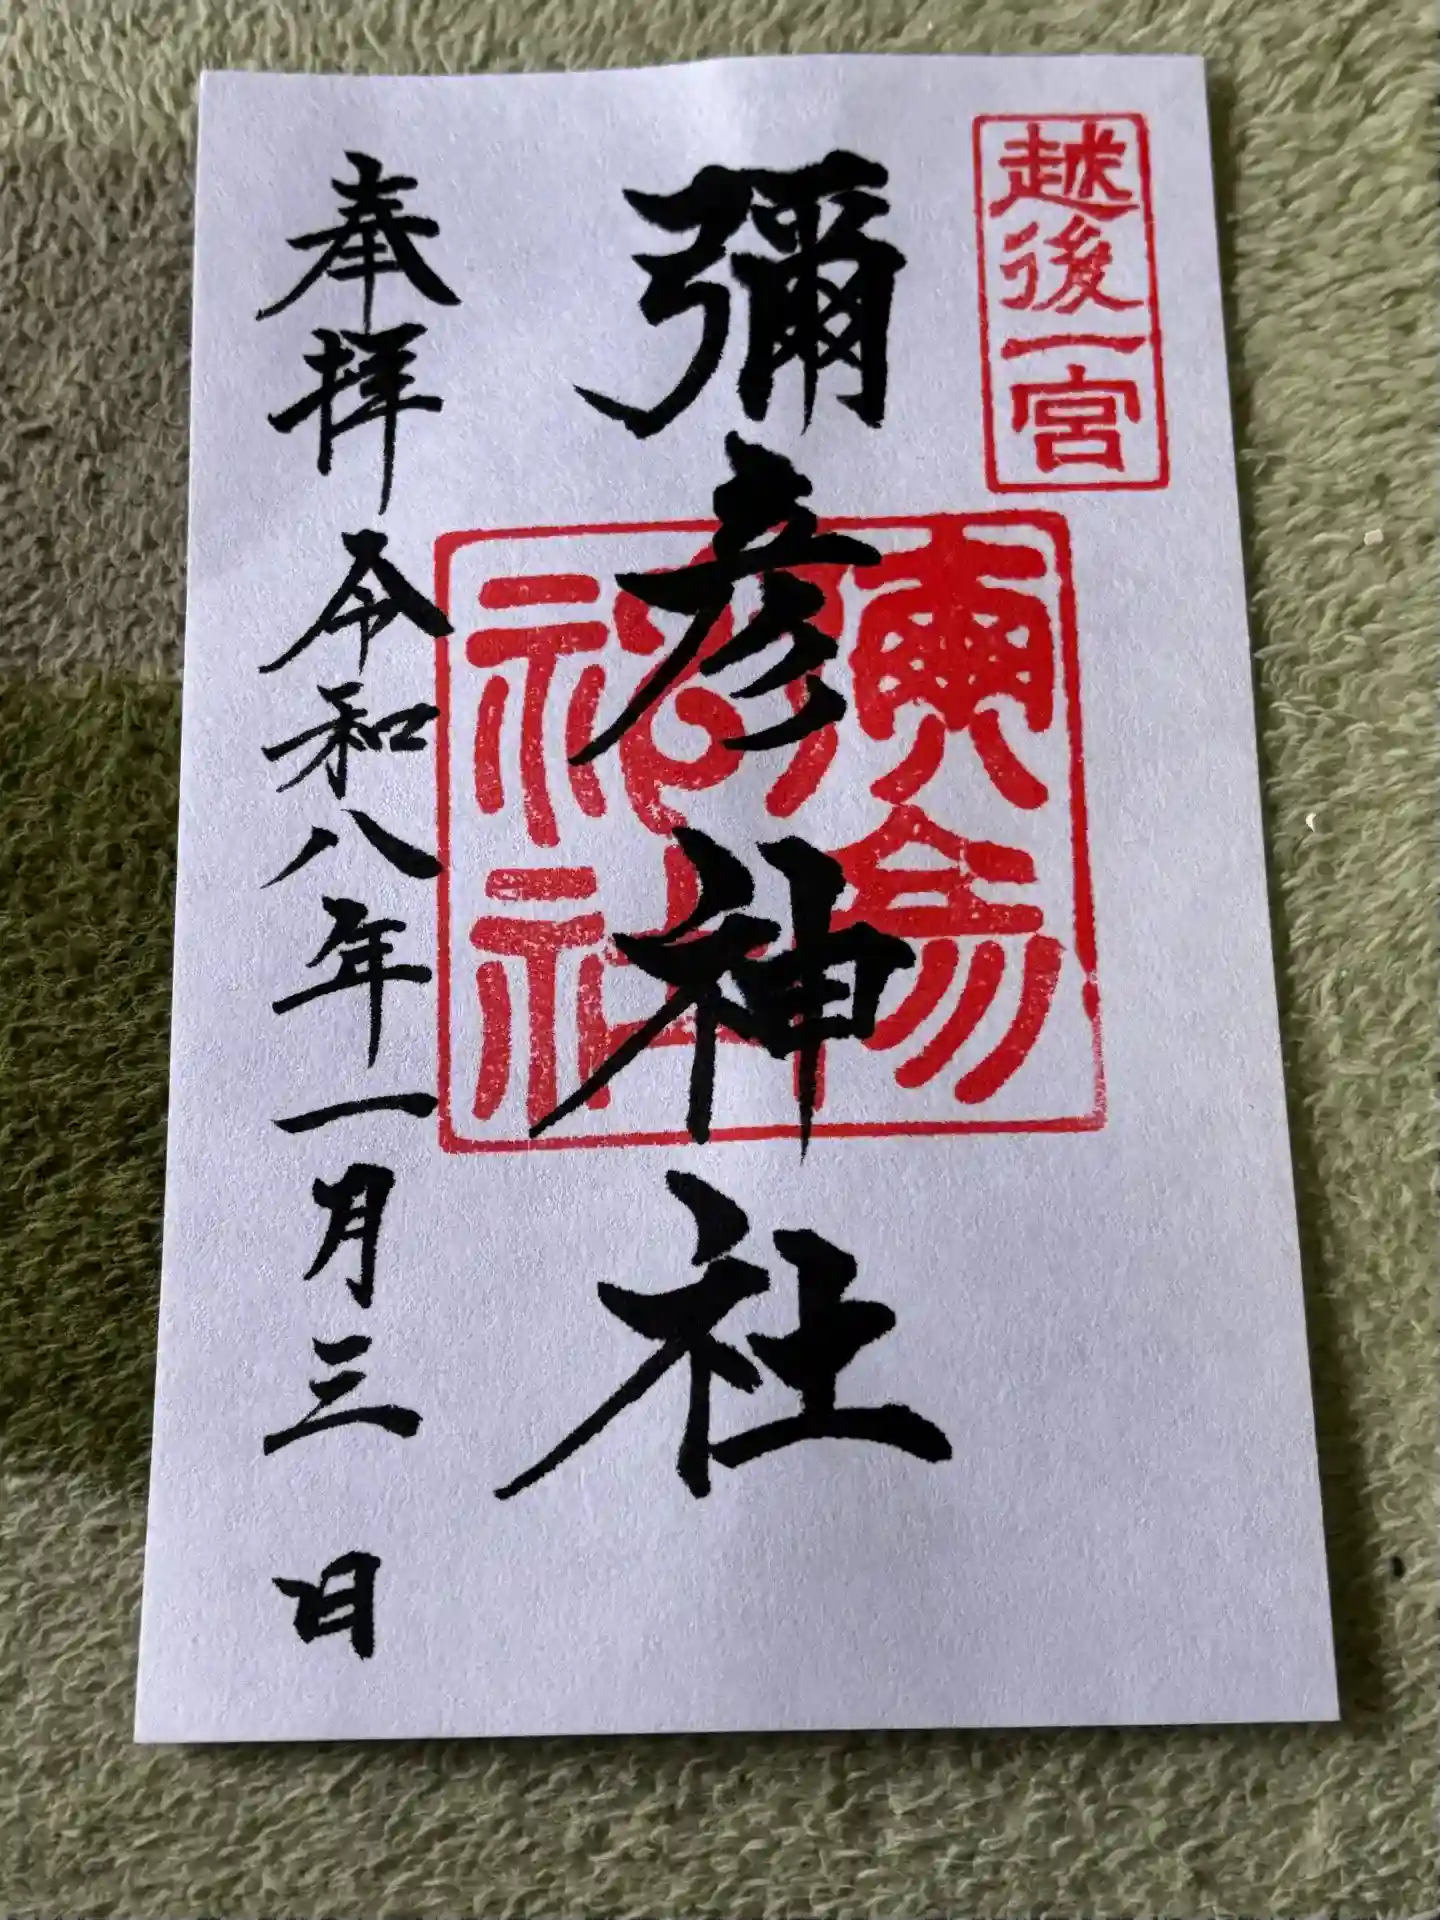 越後一宮
彌彦神社
奉拝 令和八年一月三日